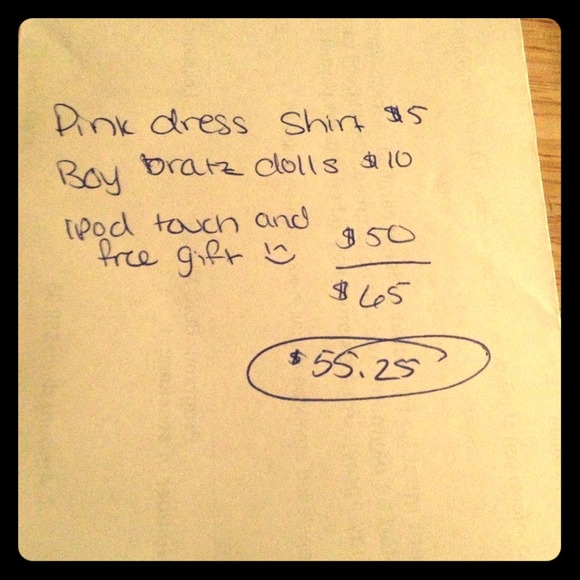 Pink dress shirt $5
Boy bratz dolls $10
ipod touch and
free gift :) $50
$65
$55.25